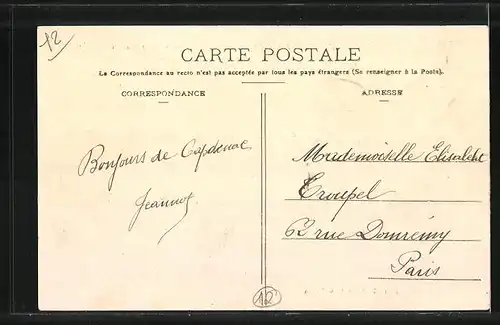 12
CARTE POSTALE
La Correspondance au recto n'est pas acceptée par tous les pays étrangers (Se renseigner à la Poste).
CORRESPONDANCE
ADRESSE
Bonjours de Capdenac
Jeannot
Mademoiselle Elisabeht
Troupel
62 rue Domrémy
Paris
12